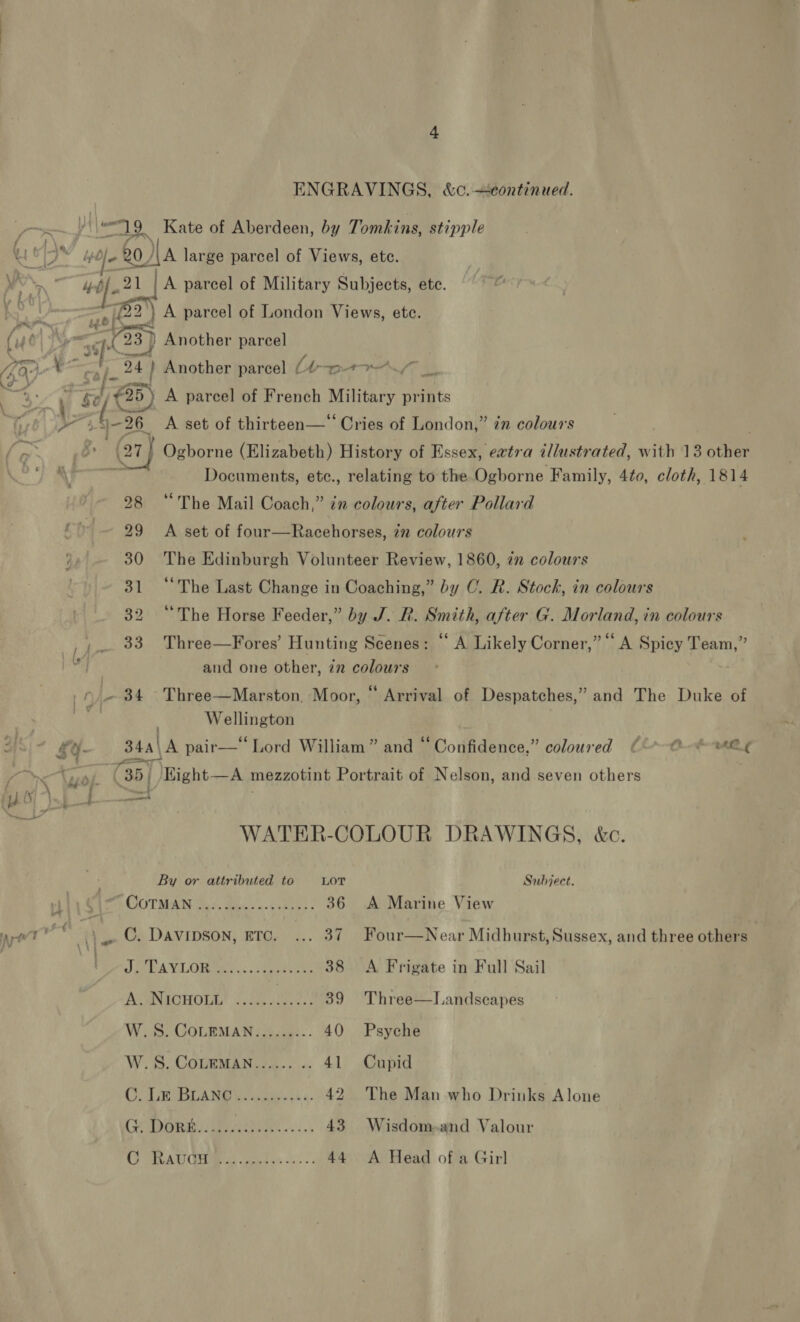 4
ENGRAVINGS, &c.—continued.
19 Kate of Aberdeen, by Tomkins, stipple
20 A large parcel of Views, etc.
21 A parcel of Military Subjects, etc.
22 A parcel of London Views, etc.
23 Another parcel
24 Another parcel
25 A parcel of French Military prints
26 A set of thirteen—“Cries of London,” in colours
27 Ogborne (Elizabeth) History of Essex, extra illustrated, with 13 other
Documents, etc., relating to the Ogborne Family, 4to, cloth, 1814
28 “The Mail Coach,” in colours, after Pollard
29 A set of four—Racehorses, in colours
30 The Edinburgh Volunteer Review, 1860, in colours
31 “The Last Change in Coaching,” by C. R. Stock, in colours
32 “The Horse Feeder,” by J. R. Smith, after G. Morland, in colours
33 Three—Fores’ Hunting Scenes: “A Likely Corner,” “A Spicy Team,”
and one other, in colours
34 Three—Marston Moor, “Arrival of Despatches,” and The Duke of
Wellington
34A A pair—“Lord William” and “Confidence,” coloured
35 Eight—A mezzotint Portrait of Nelson, and seven others
WATER-COLOUR DRAWINGS, &c.
By or attributed to LOT Subject.
COTMAN ............... 36 A Marine View
C. DAVIDSON, ETC. ... 37 Four—Near Midhurst, Sussex, and three others
J. TAYLOR ............... 38 A Frigate in Full Sail
A. NICHOLL ............ 39 Three—Landscapes
W. S. COLEMAN......... 40 Psyche
W. S. COLEMAN...... .. 41 Cupid
C. LE BLANC ............ 42 The Man who Drinks Alone
G. DORÉ.................. 43 Wisdom and Valour
C RAUCH ............... 44 A Head of a Girl